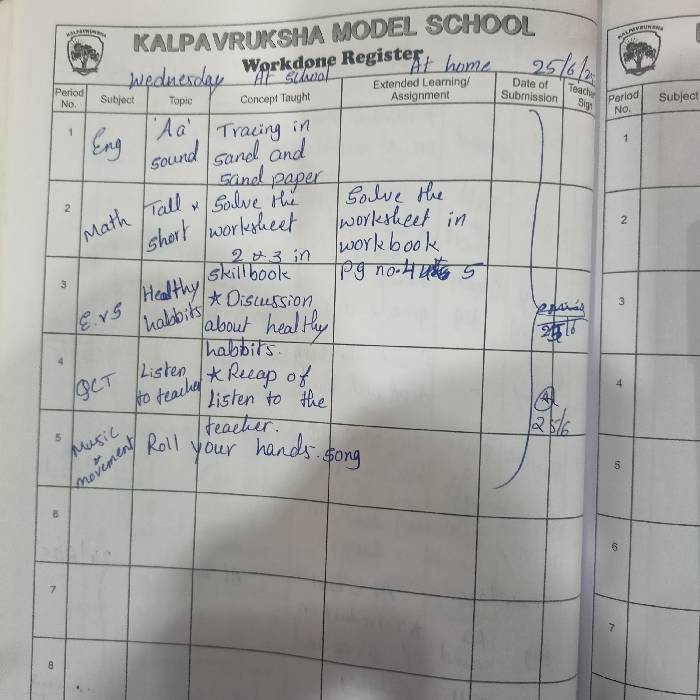 KALPAVRUKSHA MODEL SCHOOL
Workdone Register
Wednesday At school At home 25/6/25
Period No. Subject Topic Concept Taught Extended Learning/ Assignment Date of Submission Teacher Sign
1 Eng 'Aa' sound Tracing in sand and sand paper
2 Math Tall & short Solve the worksheet 2 & 3 in skillbook Solve the worksheet in workbook pg no. 4 5
3 E.VS Healthy habbits * Discussion about healthy habbits.
25/6
4 QCT Listen to teacher * Recap of Listen to the teacher.
25/6
5 Music & movement Roll your hands song
6
7
8
KALPAVRUKSHA
Period No. Subject
1
2
3
4
5
6
7